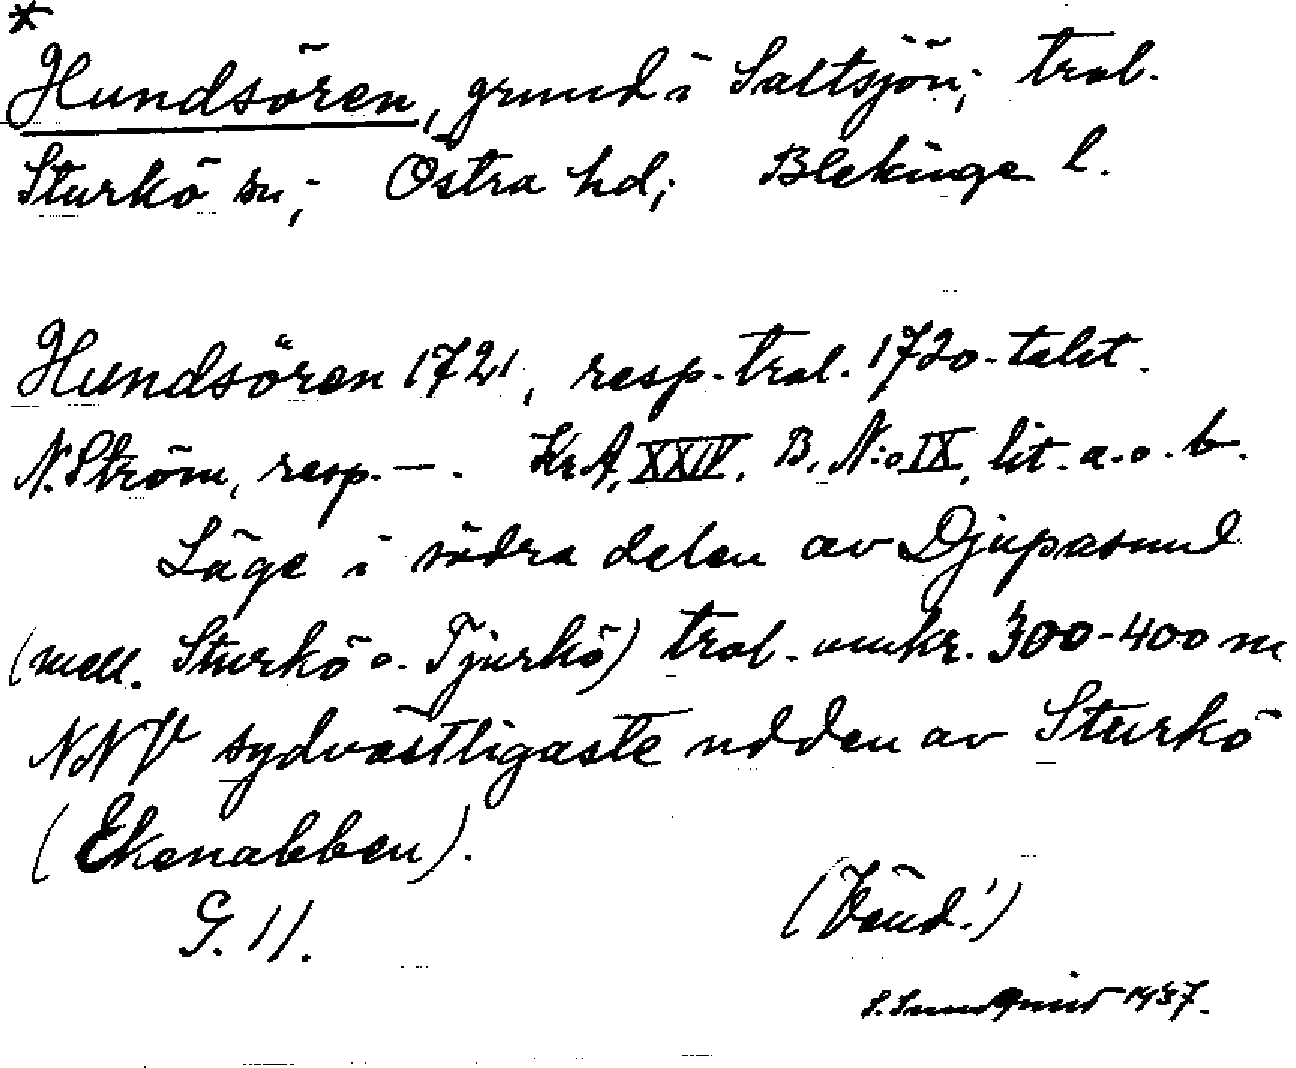 *
Hundsören, grund i Saltsjön; trol.
Sturkö sn; Östra hd; Blekinge l.
Hundsören 1721, resp. trol. 1720-talet.
N. Ström, resp. —. KrA, XXIV, B, N:o IX, lit. a. o. b.
Läge i södra delen av Djupasund
(mell. Sturkö o. Tjurkö) trol. omkr. 300-400 m
NNV sydvästligaste udden av Sturkö
(Ekenabben).
G. 11. (Vänd!)
S. Sundqvist 1937.